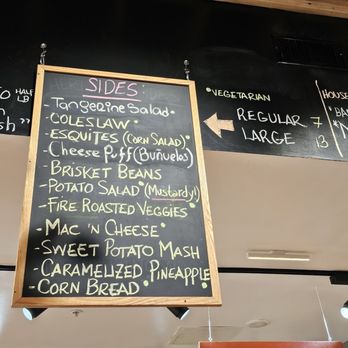 SIDES:
-Tangerine Salad•
-COLESLAW•
-ESQUITES (CORN SALAD)•
-Cheese Puff (Buñuelos)
-BRISKET BEANS
-POTATO SALAD (Mustardy!)
-FIRE ROASTED VEGGIES•
-MAC 'N CHEESE•
-SWEET POTATO MASH
-CARAMELIZED PINEAPPLE
-CORN BREAD•
HALF
LB
•VEGETARIAN
REGULAR 7
LARGE 13
HOUSE